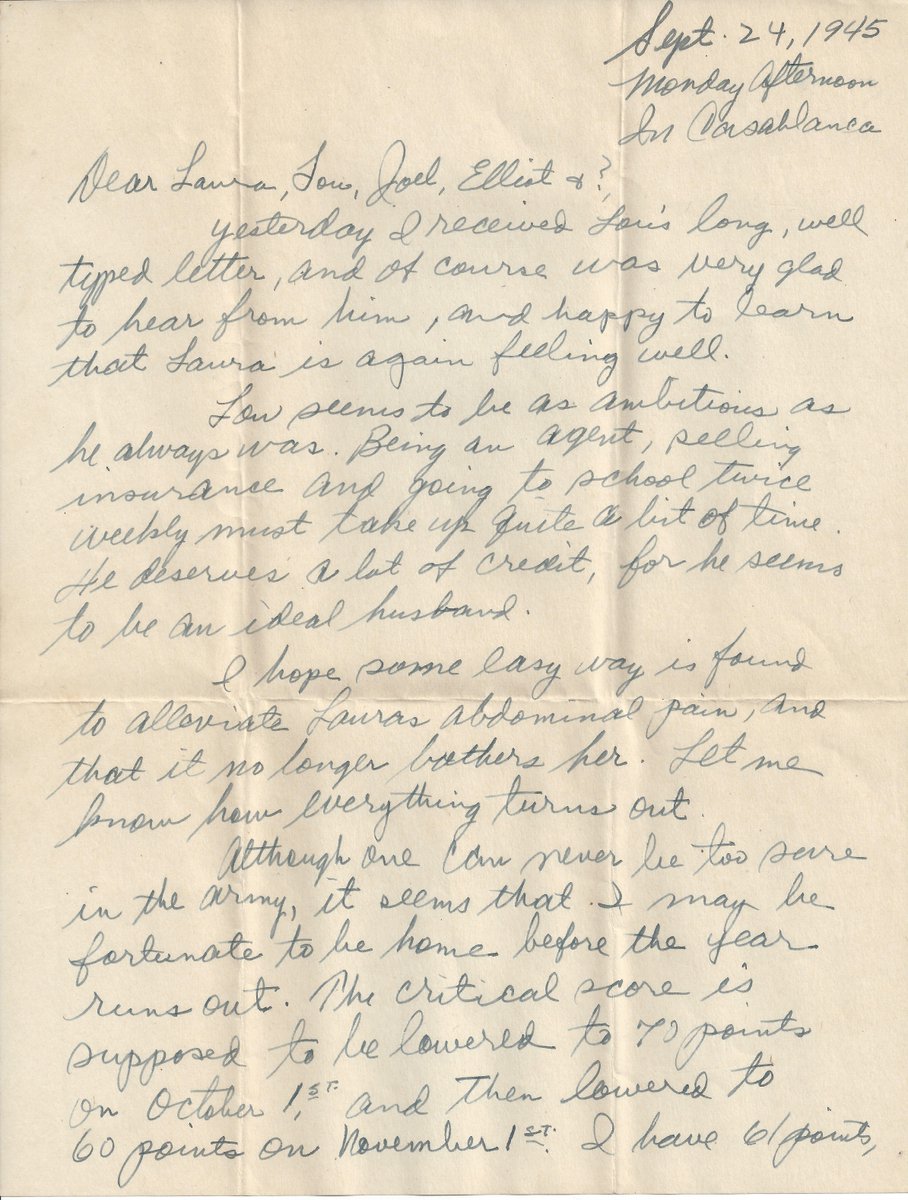 Sept. 24, 1945
Monday Afternoon
In Casablanca
Dear Laura, Lou, Joel, Elliot & ?,
yesterday I received Lou's long, well
typed letter, and of course was very glad
to hear from him, and happy to learn
that Laura is again feeling well.
Lou seems to be as ambitious as
he always was. Being an agent, selling
insurance and going to school twice
weekly must take up quite a bit of time.
He deserves a lot of credit, for he seems
to be an ideal husband.
I hope some easy way is found
to alleviate Lauras abdominal pain, and
that it no longer bothers her. Let me
know how everything turns out.
Although one can never be too sure
in the army, it seems that I may be
fortunate to be home before the year
runs out. The critical score is
supposed to be lowered to 70 points
on October 1ST. and then lowered to
60 points on November 1ST. I have 61 points,